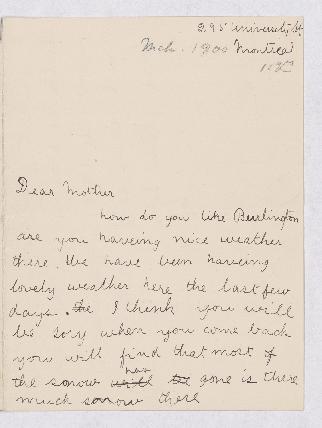 295 University St
Mch. 1900 Montreal
Dear Mother
how do you like Burlington
are you haveing nice weather
there. We have been haveing
lovely weather here the last few
days. the I think you will
be sory when you come back
you will find that most of
has
the sonow will be gone is there
much sonow there